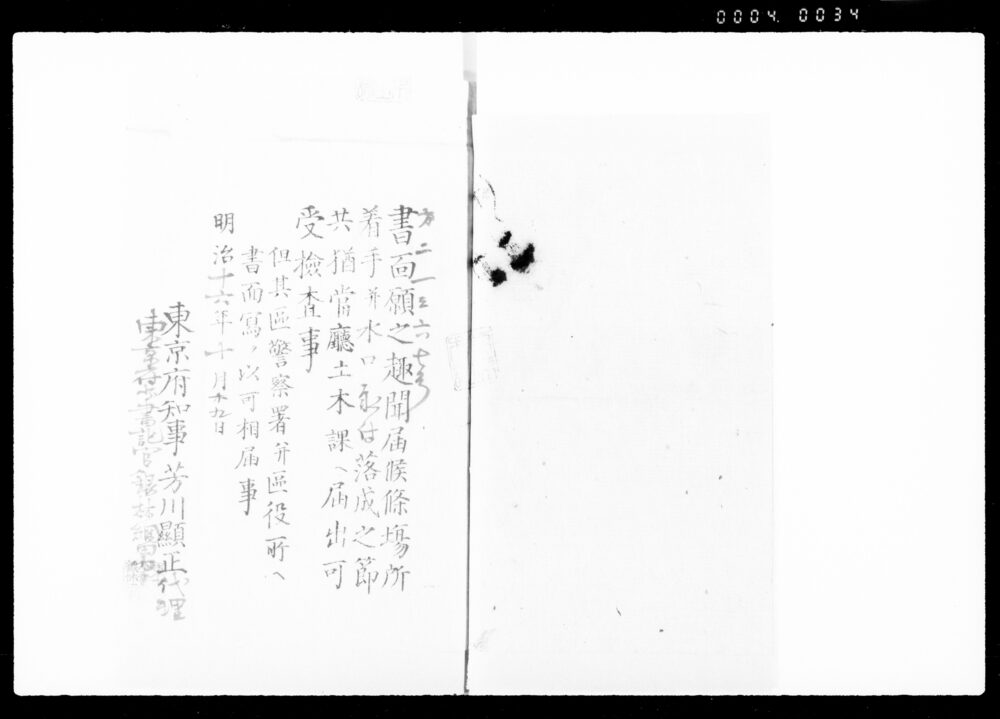 0004 0034
第二一三六七号
書面願之趣聞届候條塲所
着手并水口取付落成之節
共猶當廳土木課ヘ届出可
受檢査事
但其區警察署并區役所ヘ
書面寫ヲ以可相届事
明治十六年十月十九日
東京府知事芳川顯正代理
東京府少書記官銀林綱男